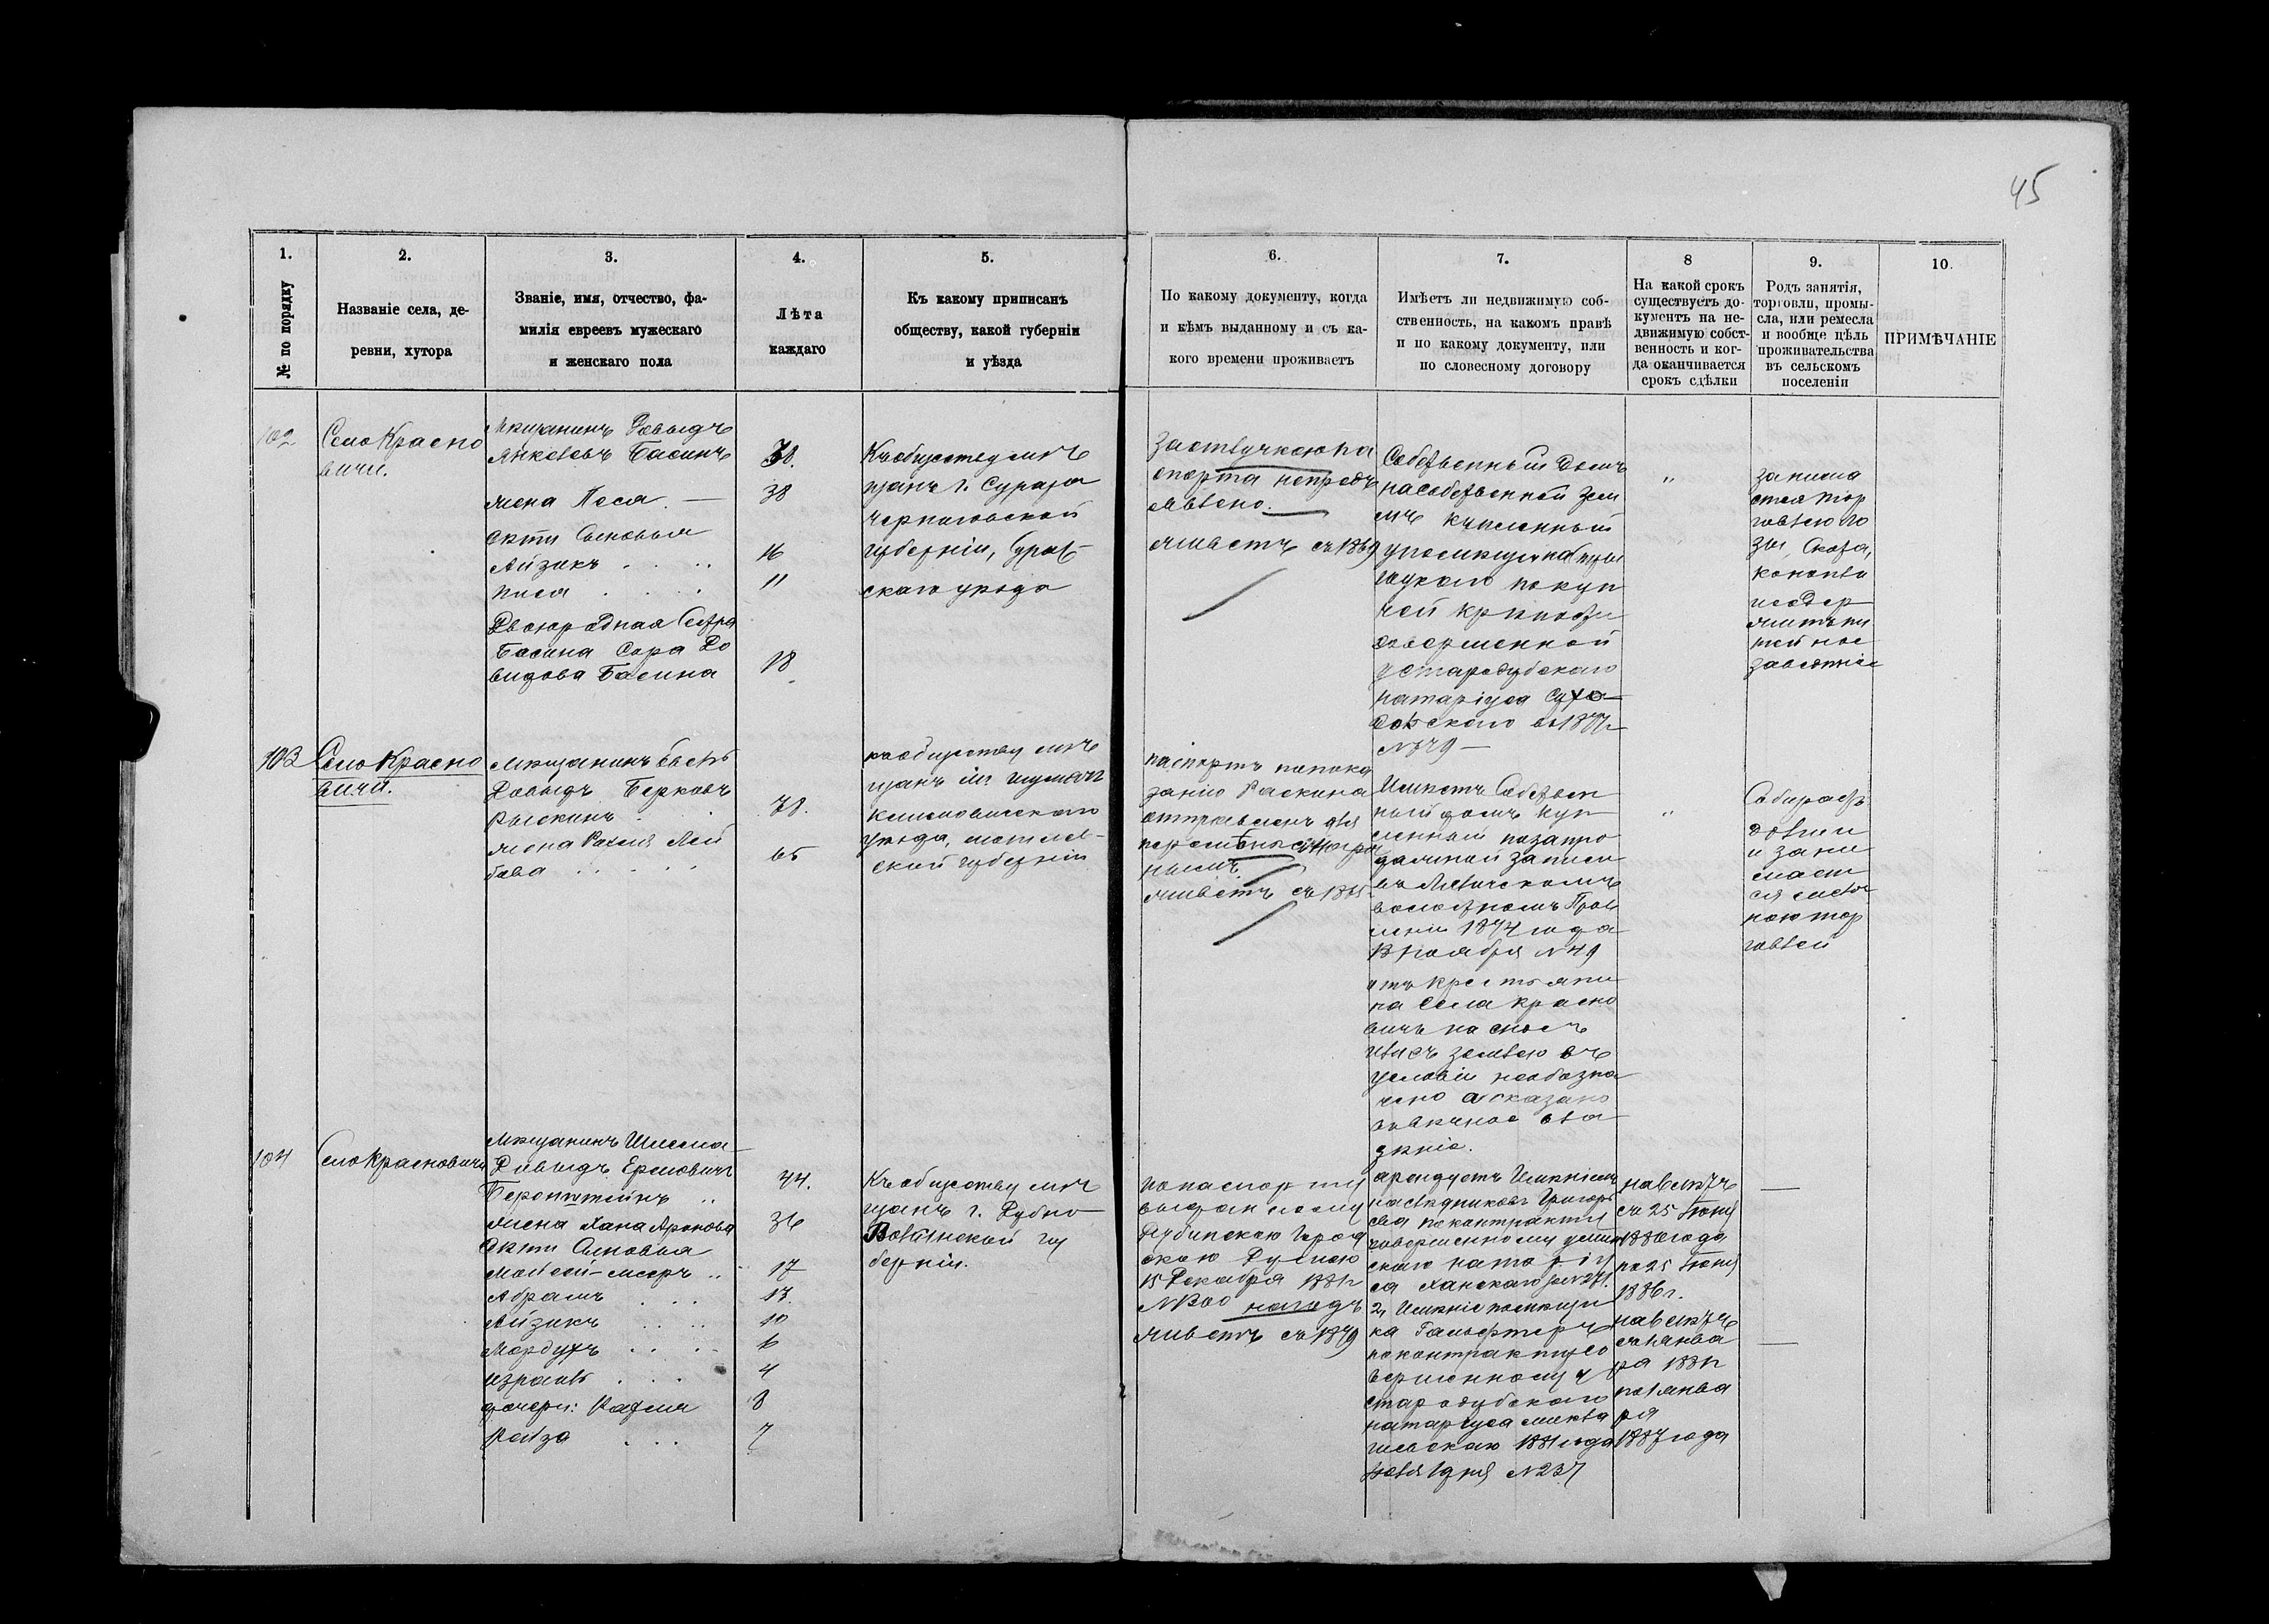 45
1.
№ по порядку
2.
Названіе села, де-
ревни, хутора
3.
Званіе, имя, отчество, фа-
милія евреевъ мужескаго
и женскаго пола
4.
Лѣта
каждаго
5.
Къ какому приписанъ
обществу, какой губерніи
и уѣзда
6.
По какому документу, когда
и кѣмъ выданному и съ ка-
кого времени проживаетъ
7.
Имѣетъ ли недвижимую соб-
ственность, на какомъ правѣ
и по какому документу, или
по словесному договору
8
На какой срокъ
существуетъ до-
кументъ на не-
движимую собст-
венность и ког-
да оканчивается
срокъ сдѣлки
9.
Родъ занятія,
торговли, промы-
сла, или ремесла
и вообще цѣль
проживательства
въ сельскомъ
поселеніи
10.
ПРИМѢЧАНІЕ
102
Село Красно
вичи.
Мѣщанинъ Довыдъ
Янкевевъ Басинъ
жена Песя. —
дѣти Сыновья
Айзикъ . . . .
Двоюродная Сестра
Басина Сора До
видова Басина
38
16
11
18
Къ обществу мѣ
щанъ г. Суража
Черниговской
губерніи, Сураж
скаго уѣзда
За отлучкою па
спорта непредъ
явлено.
живетъ съ 1869
Собственный домъ
на собственной зем
лѣ купленный
по куп
чей крѣпости
совершенной
у Стародубскаго
натаріуса Сухо
№ 79 —
"
занима
ется тор
говлею ло
зы, Скота,
конопли
и содер
житъ пи
тейное
заведеніе
103
Село Красно
вичи.
Мѣщанинъ
Довыдъ Берковъ
Рыскинъ . . .
жена Рахля Лей
бова . . . . .
78.
65
къ обществу мѣ
щанъ м.
Климовицкаго
уѣзда, могилев-
ской губерніи
паспортъ по пока
занію Раскина
отправленъ для
перемѣны
живетъ съ 1865
Имѣетъ Собствен
ный домъ куп
ленный по запро
дажной записи
въ Лялическомъ
волостномъ Прав
леніи 1874 года
13 Ноября № 49
отъ крестьяни
на Села Красно
вичъ на сносъ
или съ землею въ
условіи необозна
чено а сказано
въ вѣчное вла
дѣніе.
"
Собираетъ
долги
и зани
мает
ся мелоч
ною тор
говлей
104
Село Красновичи
Мѣщанинъ Шлема
Довыдъ Ермовичъ
Беронштейнъ ..
жена Хана Аронова
дѣти Сыновья
Мовсей-мееръ ..
Абрамъ . . .
Айзикъ . . . .
Мордухъ . . . .
Израиль . . .
дочери: Рахля
Рейза . . .
44.
36
17
13.
10
6
4
8
7
Къ обществу мѣ
щанъ г. Дубно
Волынской гу
берніи.
по паспорту
выданному
Дубенскою Город
скою Думою
15 Декабря 1881 г
№ 300 на годъ
живетъ съ 1879
арендуетъ Имѣніемъ
наслѣдниковъ Григорь
ева по контракту
совершенному
скаго натаріу
са Ханскаго
2, Имѣніе помѣщи
ка
по контракту со
вершенному у
Стародубскаго
натаріуса
1881 года
Іюля 1 дня № 237
на 6 лѣтъ
съ 25 Іюня
1880 года
по 25 Іюня
1886 г.
на 6 лѣтъ
съ 1 янва
ря 1881 г
по 1 янва
ря
1887 года
—
—